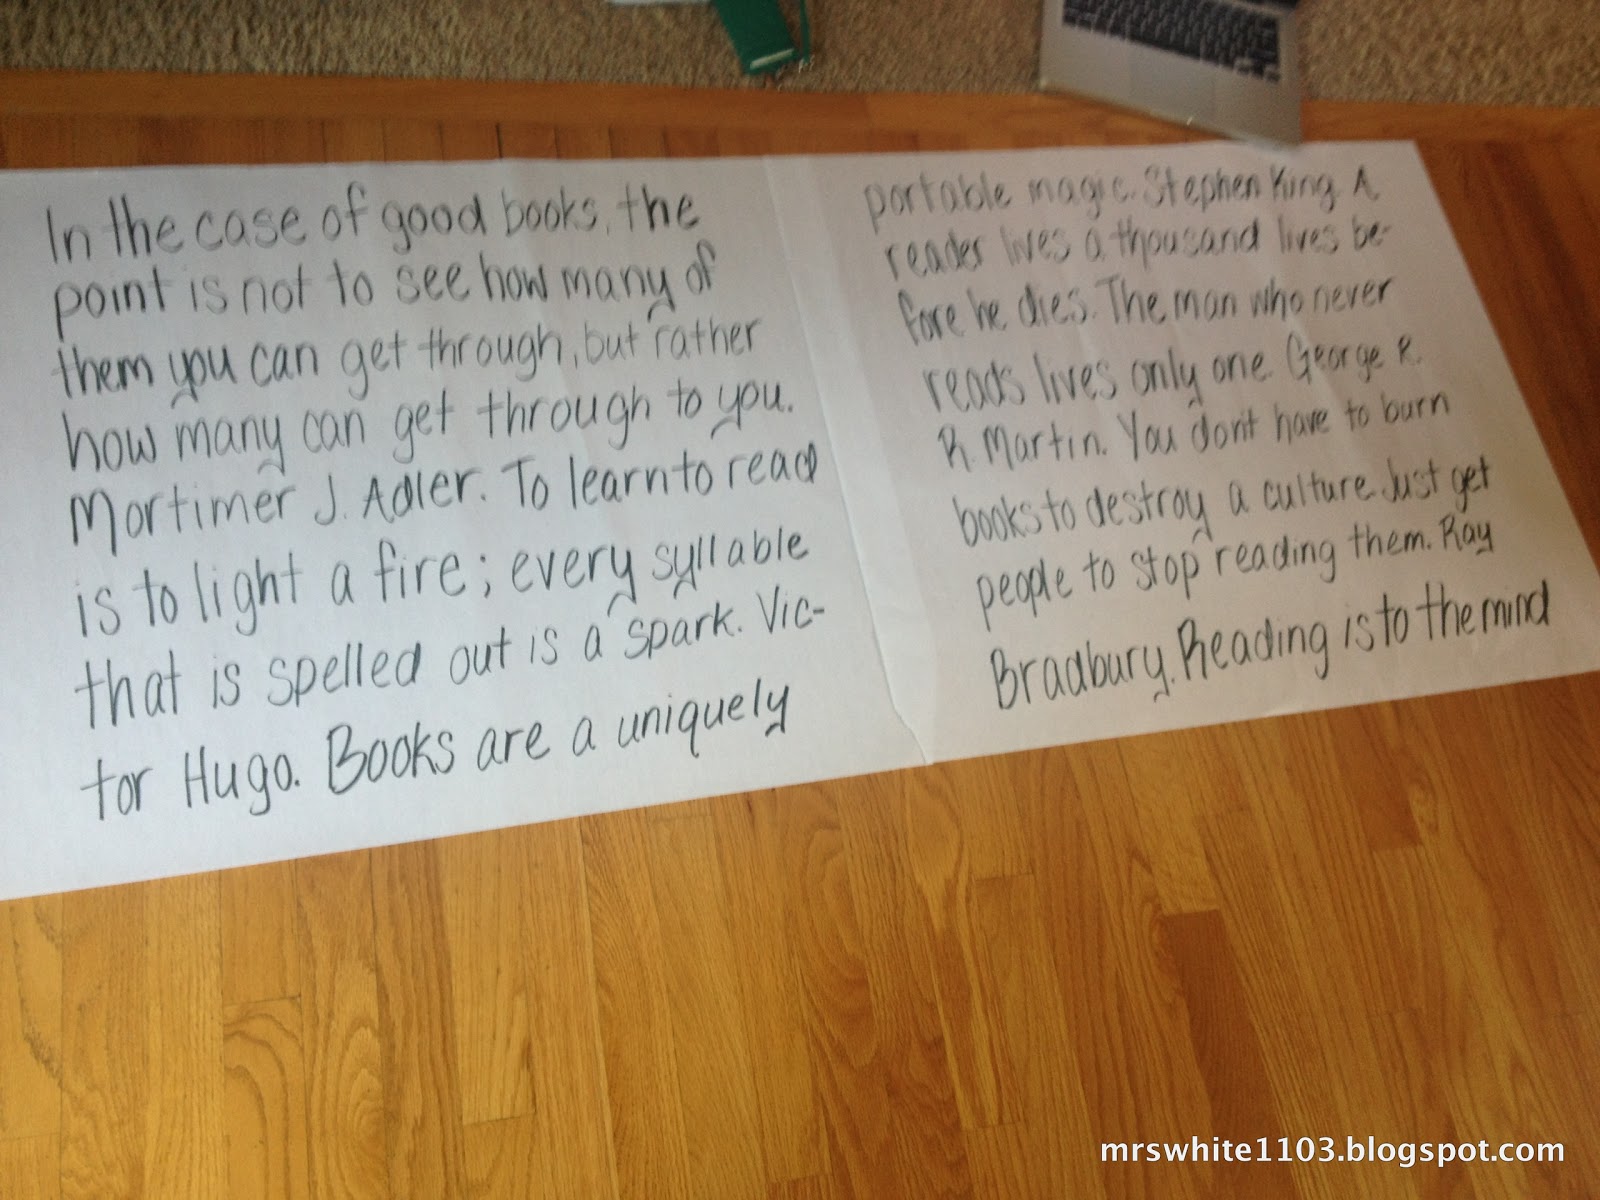 In the case of good books, the
point is not to see how many of
them you can get through, but rather
how many can get through to you.
Mortimer J. Adler. To learn to read
is to light a fire; every syllable
that is spelled out is a spark. Vic-
tor Hugo. Books are a uniquely
portable magic. Stephen King. A
reader lives a thousand lives be-
fore he dies. The man who never
reads lives only one. George R.
R. Martin. You don't have to burn
books to destroy a culture. Just get
people to stop reading them. Ray
Bradbury. Reading is to the mind
mrswhite1103.blogspot.com